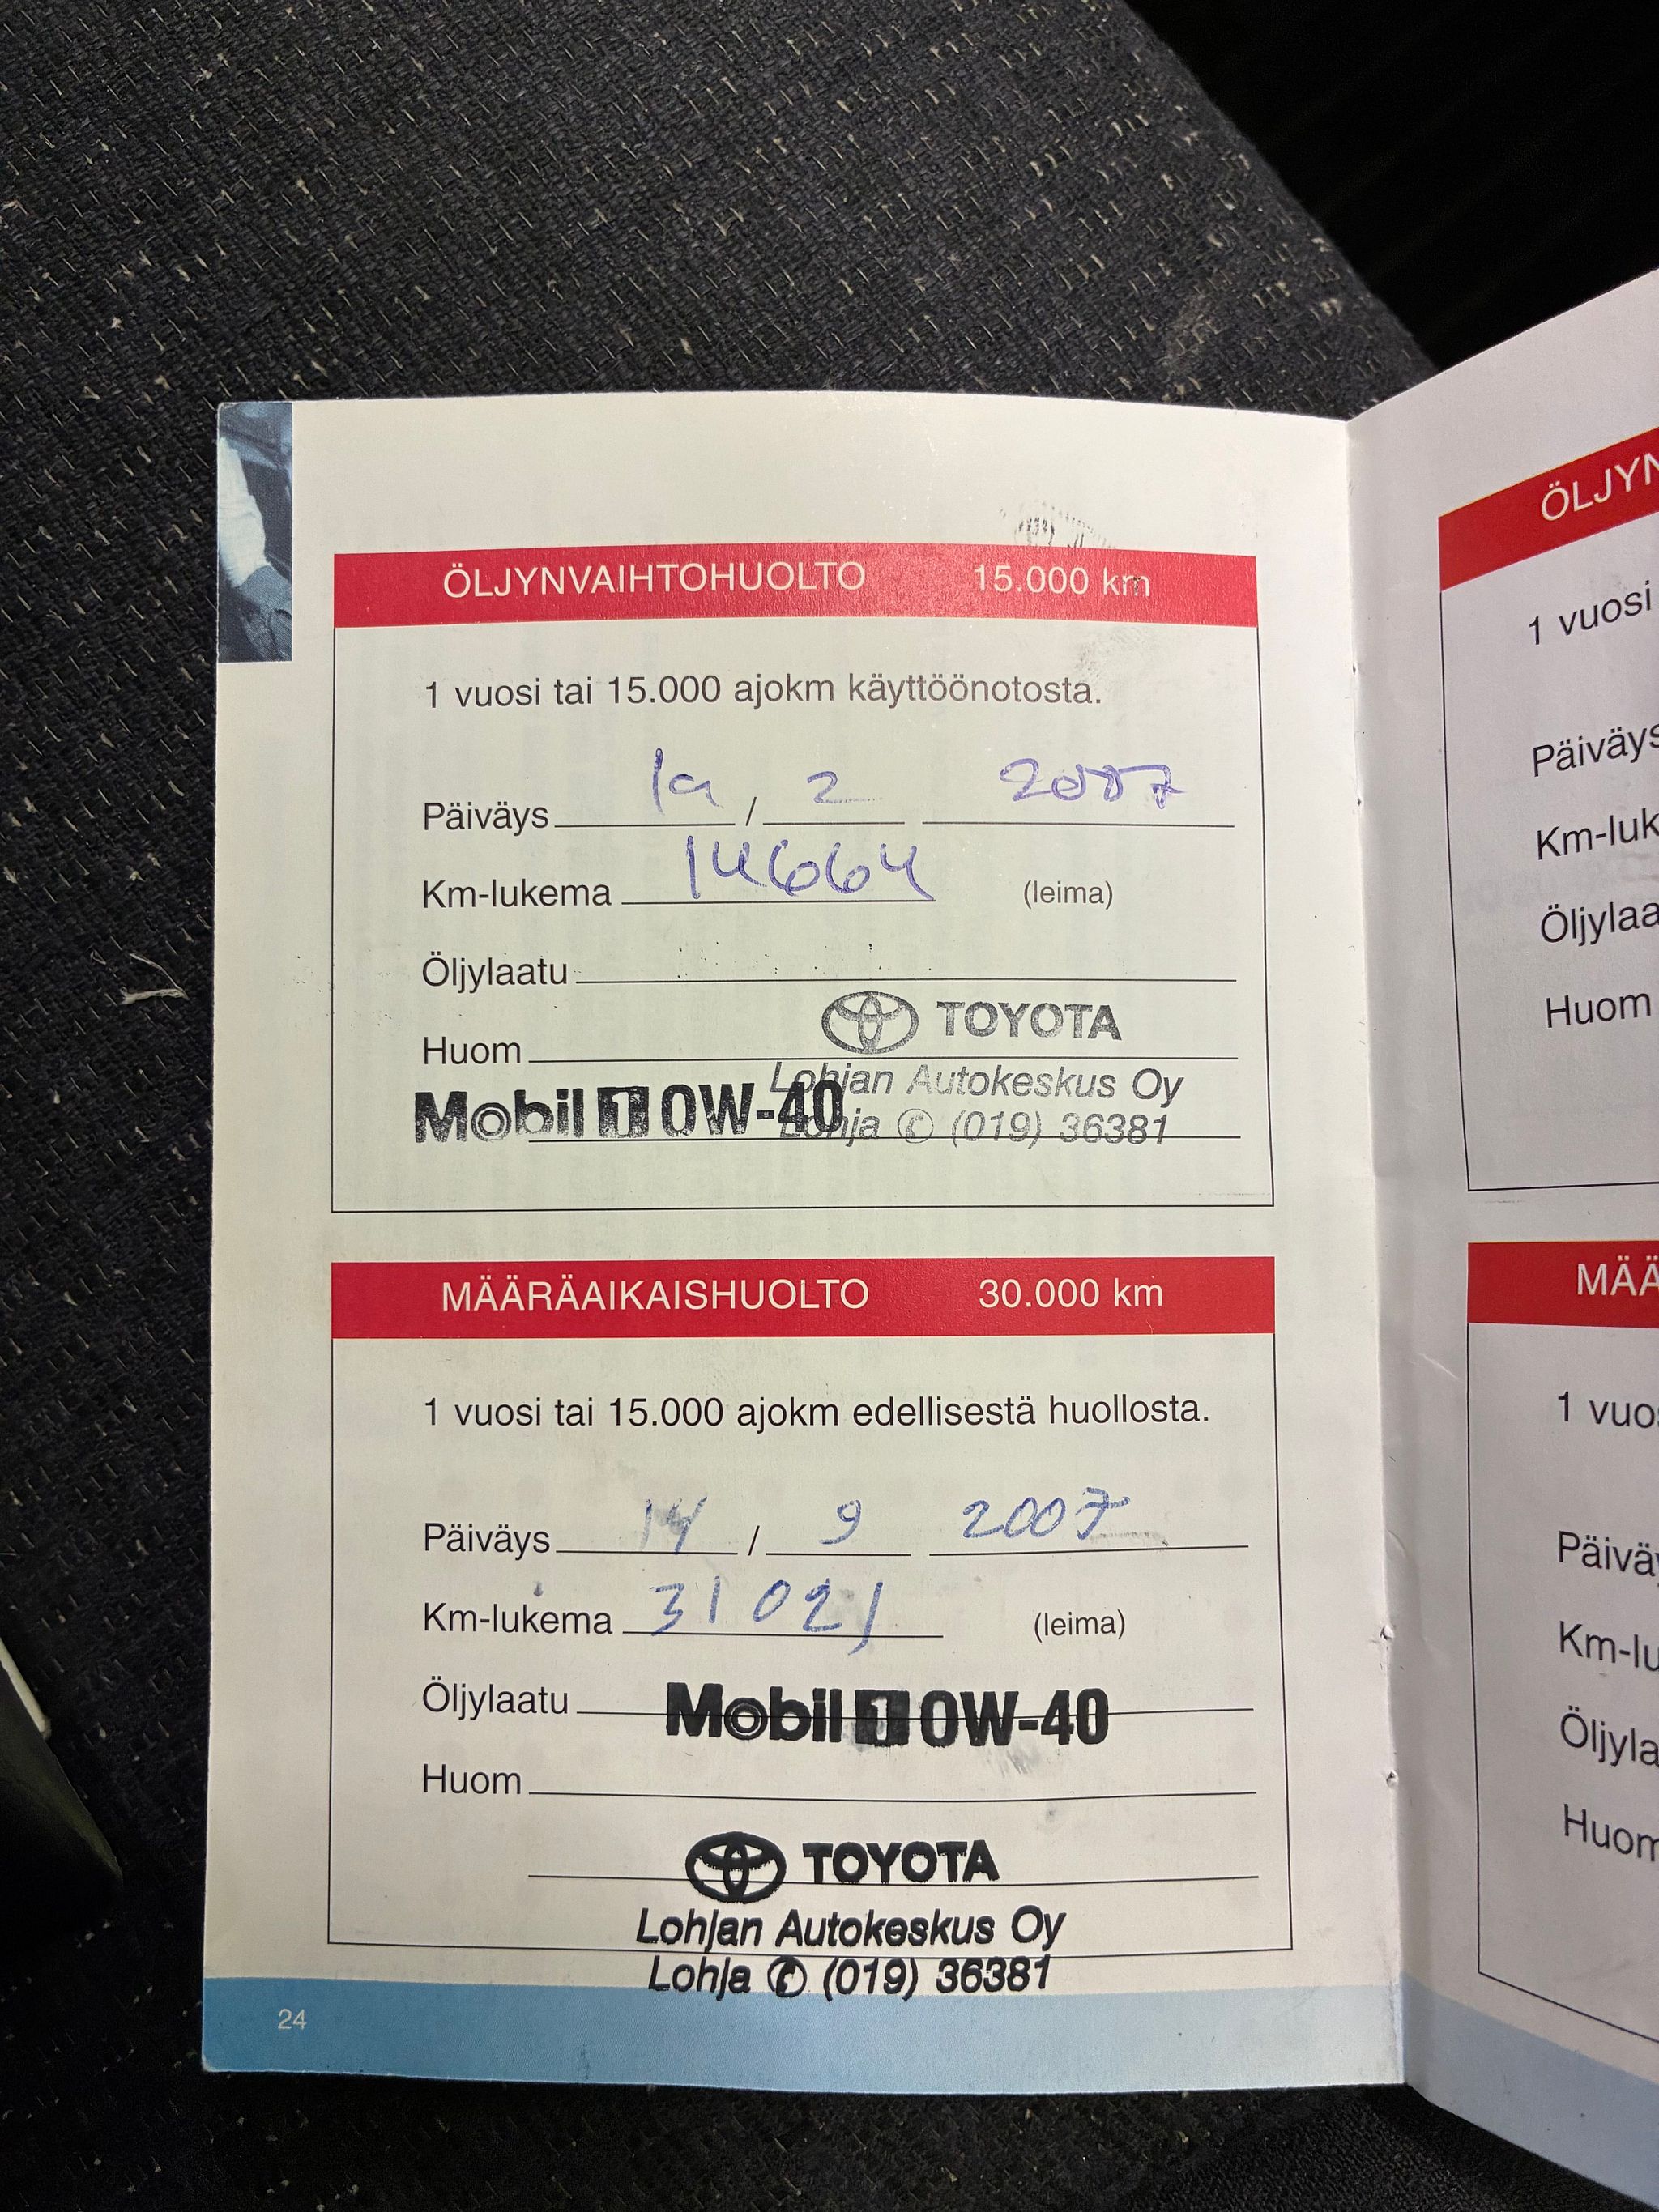 ÖLJYNVAIHTOHUOLTO 15.000 km
1 vuosi tai 15.000 ajokm käyttöönotosta.
Päiväys 19 / 2 2007
Km-lukema 14664 (leima)
Öljylaatu
TOYOTA
Huom
Lohjan Autokeskus Oy
Mobil 1 0W-40
Lohja ✆ (019) 36381
MÄÄRÄAIKAISHUOLTO 30.000 km
1 vuosi tai 15.000 ajokm edellisestä huollosta.
Päiväys 14 / 9 2007
Km-lukema 31021 (leima)
Öljylaatu Mobil 1 0W-40
Huom
TOYOTA
Lohjan Autokeskus Oy
Lohja ✆ (019) 36381
24
ÖLJYN
1 vuosi
Päiväys
Km-luk
Öljylaa
Huom
MÄÄ
1 vuo
Päiväy
Km-lu
Öljyla
Huom